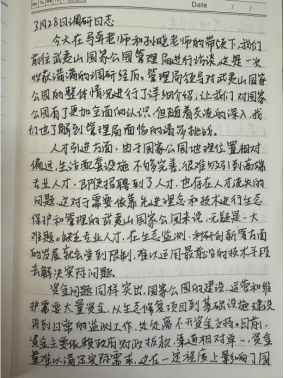 3月28日调研日志
今天在马奔老师和孙晓老师的带领下,我们
前往武夷山国家公园管理局进行访谈,这是一次
收获满满的调研经历,管理局领导对武夷山国家
公园的整体情况进行了详细介绍,让我们对国家
公园有了更加全面的认识。但随着交流的深入,我
们也了解到管理局面临的诸多挑战。
人才引进方面,由于国家公园地理位置相对
偏远,生活配套设施不够完善,很难吸引到高端
专业人才,即使招聘到了人才,也存在人才流失的
问题,这对于需要依靠先进理念和技术进行生态
保护和管理的武夷山国家公园来说,无疑是一大
难题。缺乏专业人才,在生态监测、科研创新等方面
的发展就会受到限制,难以运用最前沿的技术手段
去解决实际问题。
资金问题同样突出,国家公园的建设、运营和维
护需要大量资金,从生态修复项目到基础设施建设
再到日常的监测工作,处处离不开资金支持。目前,
资金主要依赖政府财政拨款,渠道相对单一,资金
量难以满足实际需求,这在一定程度上影响了国